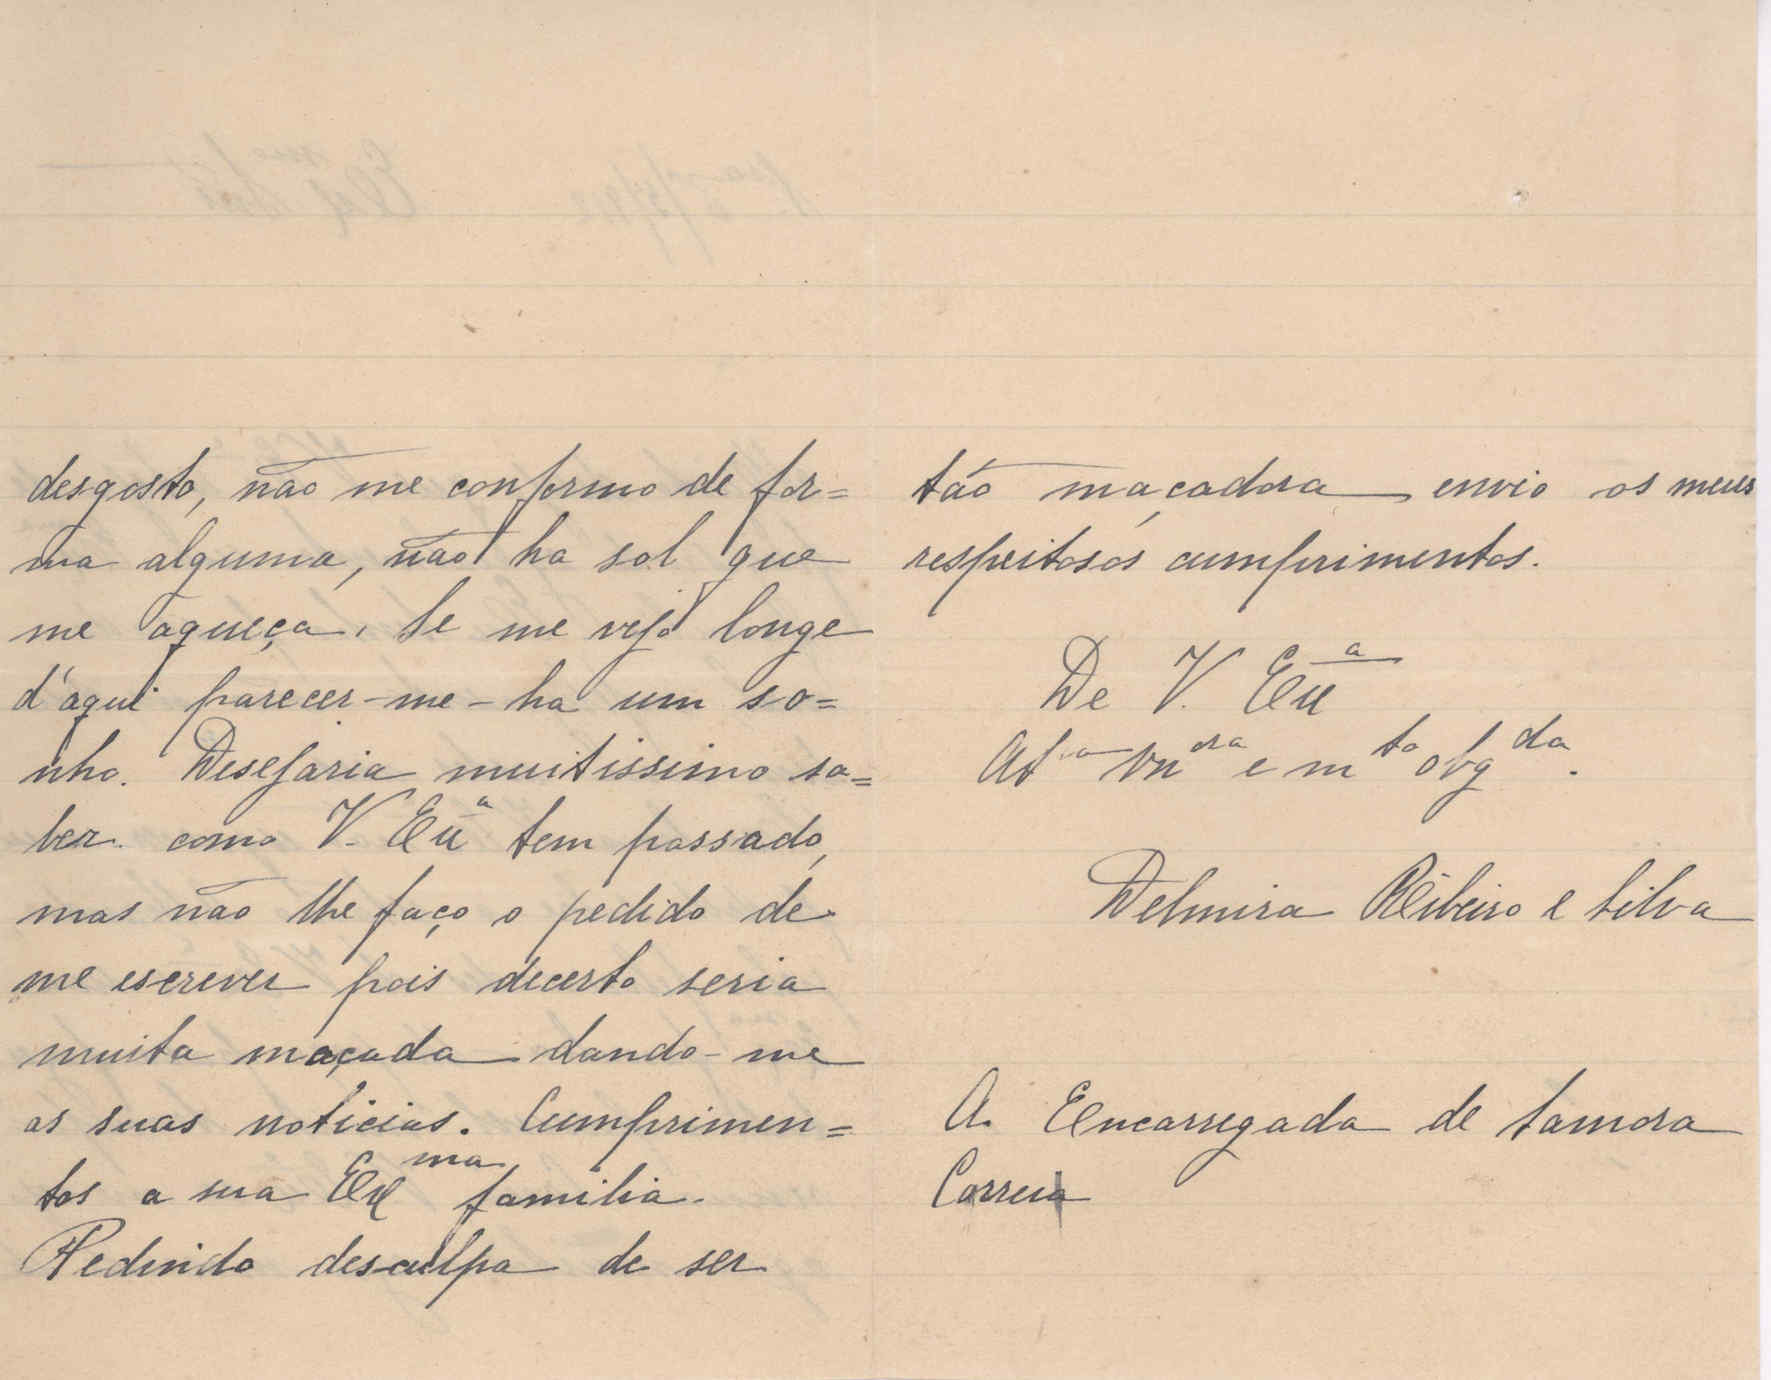 desgosto, não me conformo de for=
ma alguma, não ha sol que
me aqueça. Se me vejo longe
d'aqui parecer-me-ha um so=
nho. Desejaria muitissimo sa=
ber como V. Exª tem passado,
mas não lhe faço o pedido de
me escrever pois decerto seria
muita maçada dando-me
as suas noticias. Cumprimen=
tos a sua Exma familia.
Pedindo desculpa de ser
tão maçadora envio os meus
respeitosos cumprimentos.
De V. Exª
Atª Vnora e mto obgda.
Delmira Ribeiro e Silva
A Encarregada de Samora
Correia